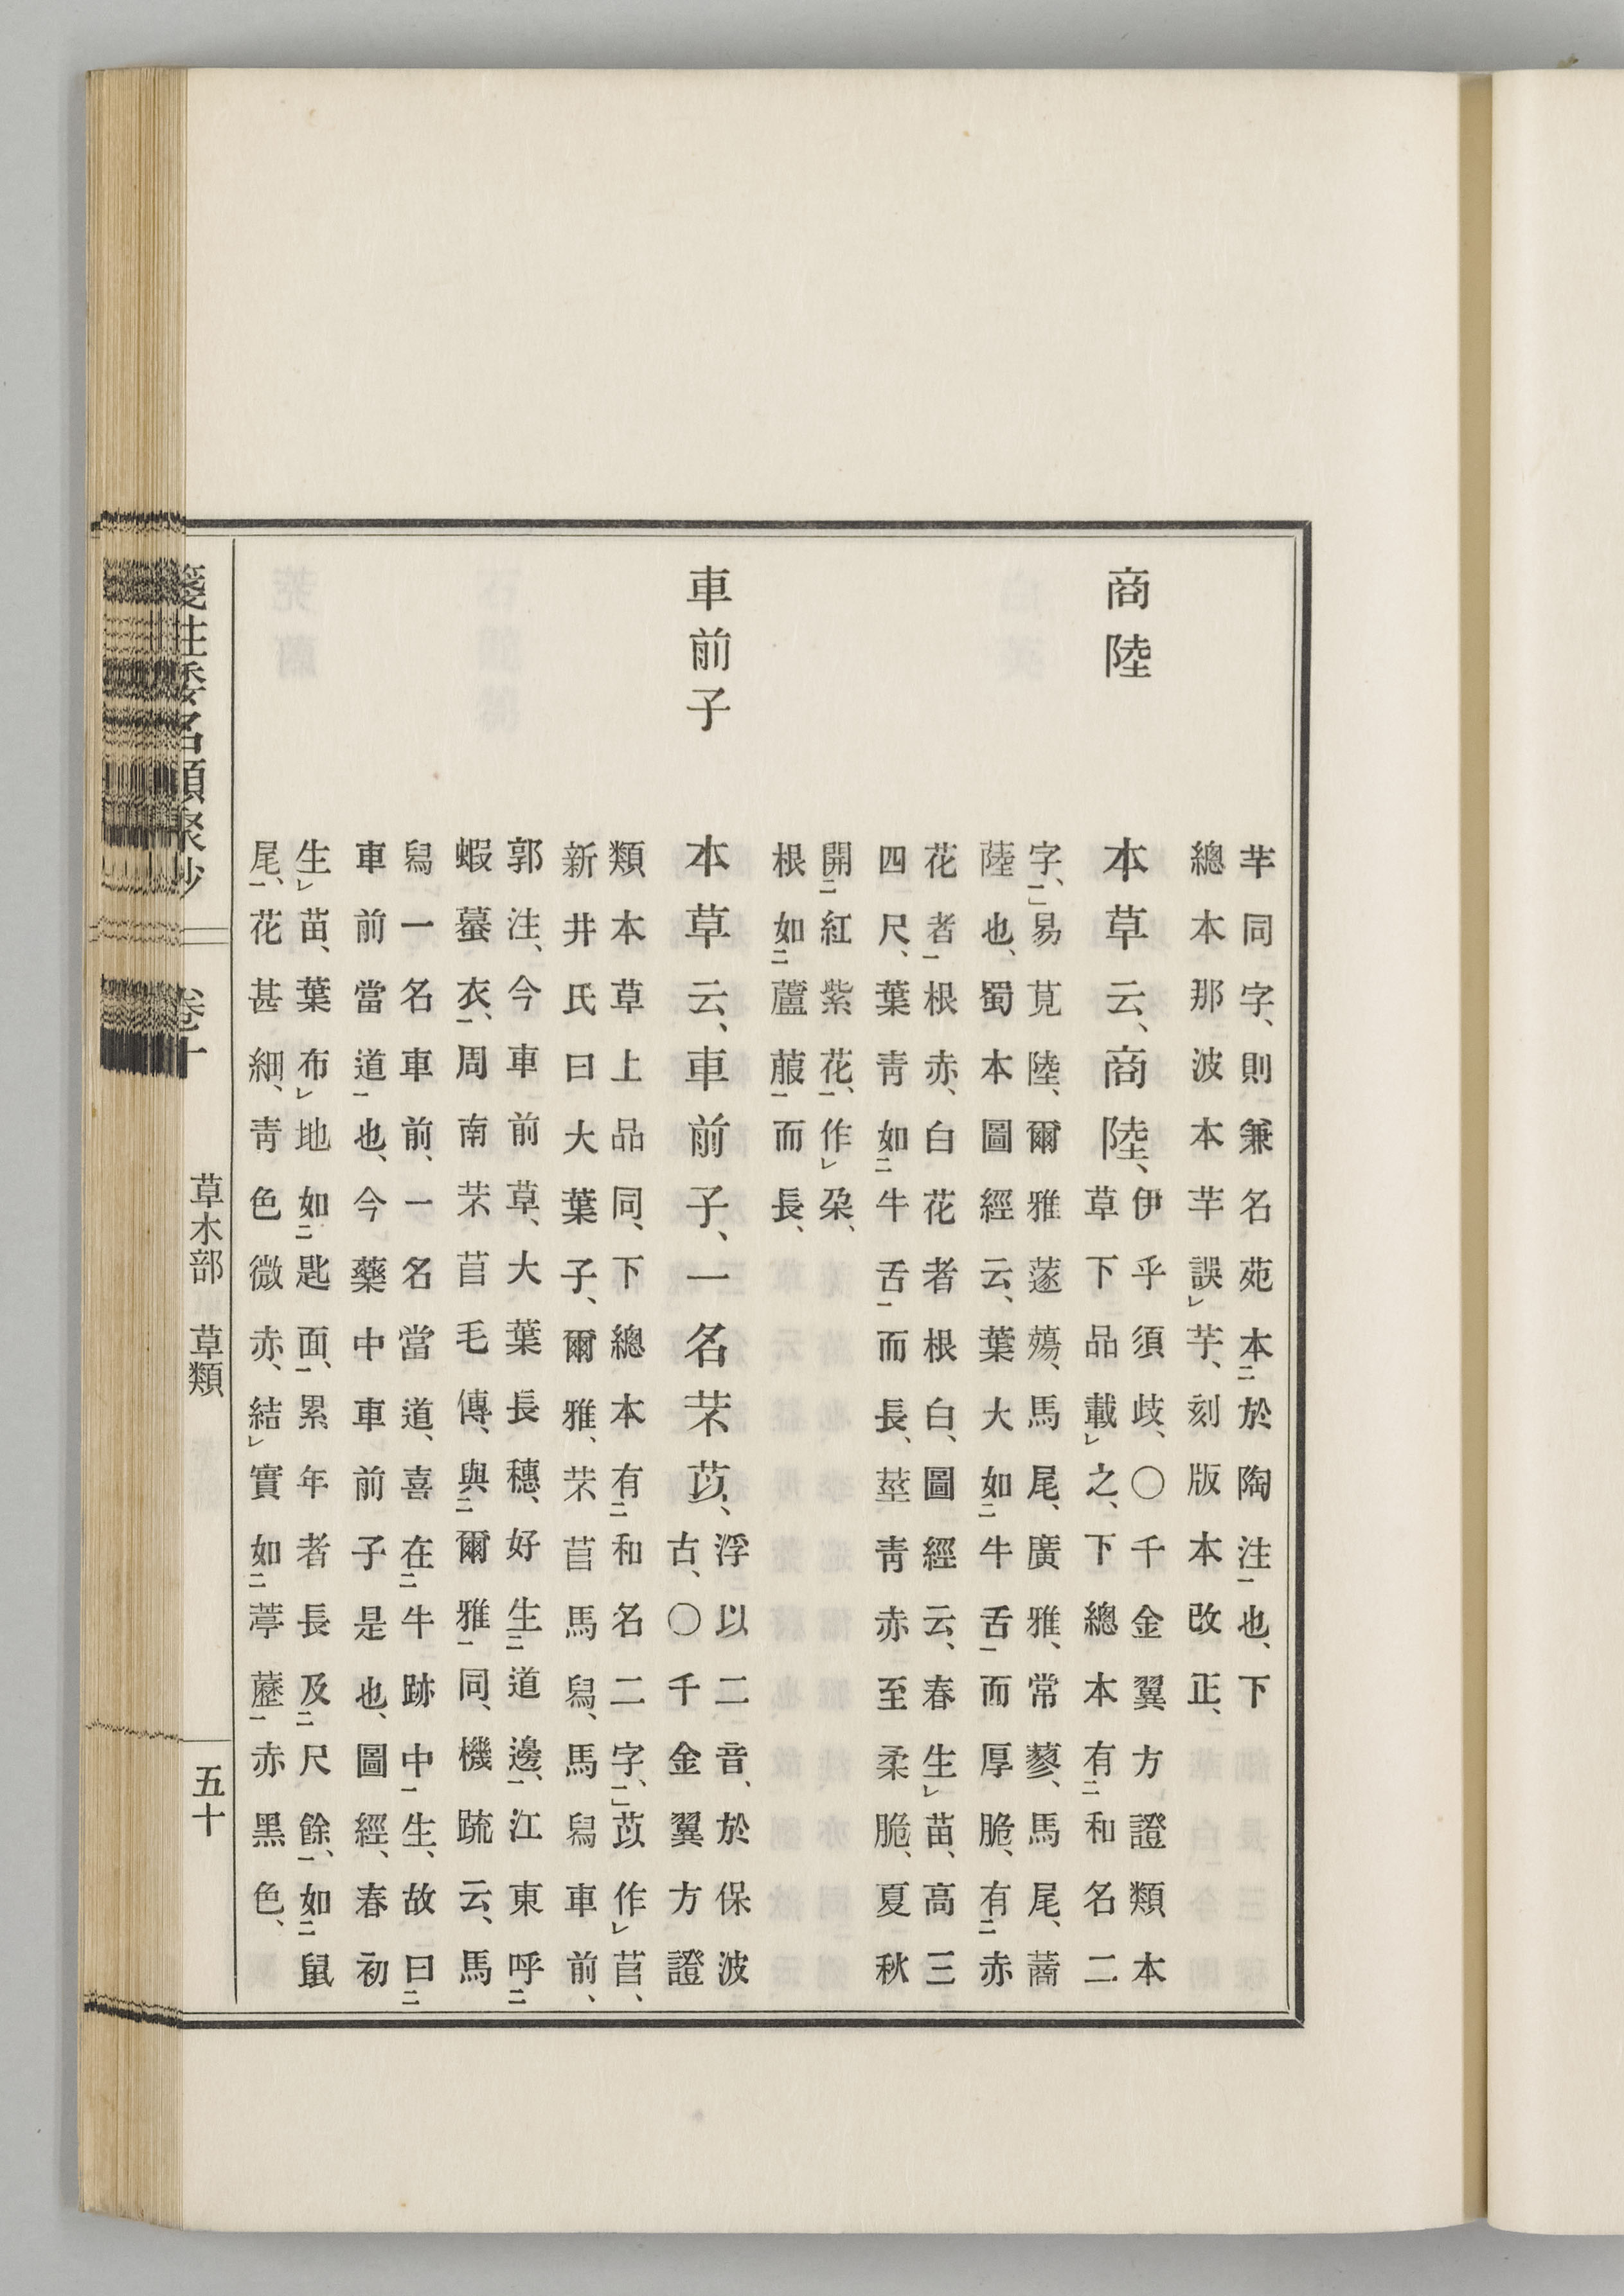 芉同字、則兼名苑本㆓於陶注㆒也、下
總本那波本芉誤㆑芋、刻版本改正、
商陸
本草云、商陸、
伊乎須歧、〇千金翼方證類本
草下品載㆑之、下總本有㆓和名二
字、㆒易莧陸、爾雅蓫薚、馬尾、廣雅、常蓼、馬尾、蔏
陸也、蜀本圖經云、葉大如㆓牛舌㆒而厚脆、有㆓赤
花者㆒根赤、白花者根白、圖經云、春生㆑苗、高三
四尺、葉靑如㆓牛舌㆒而長、莖靑赤至柔脆、夏秋
開㆓紅紫花、㆒作㆑朶、
根如㆓蘆菔㆒而長、
車前子
本草云、車前子、一名芣苡、
浮以二音、於保波
古、〇千金翼方證
類本草上品同、下總本有㆓和名二字、㆒苡作㆑苢、
新井氏曰大葉子、爾雅、芣苢馬舄、馬舄車前、
郭注、今車前草、大葉長穗、好生㆓道邊、㆒江東呼㆓
蝦蟇衣、㆒周南芣苢毛傳、與㆓爾雅㆒同、機疏云、馬
舄一名車前、一名當道、喜在㆓牛跡中㆒生、故曰㆓
車前當道㆒也、今藥中車前子是也、圖經、春初
生㆑苗、葉布㆑地如㆓匙面、㆒累年者長及㆓尺餘、㆒如㆓鼠
尾、㆒花甚細、靑色微赤、結㆑實如㆓葶藶㆒赤黑色、
箋注倭名類聚抄 卷十 草木部 草類 五十